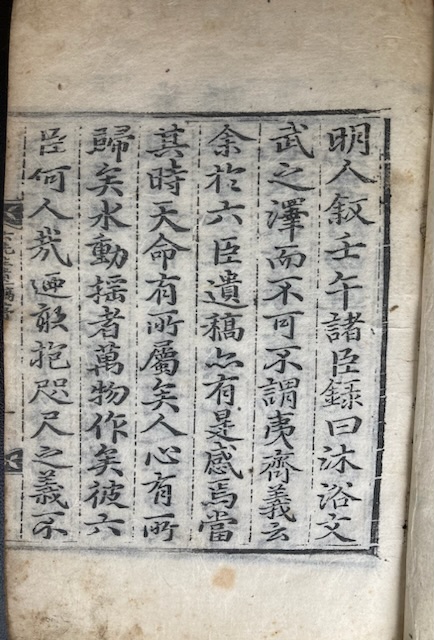 明人叙壬午諸臣錄曰沐浴文
武之澤而不可不謂夷齊義云
余於六臣遺稿亦有是感焉當
其時天命有所屬矣人心有所
歸矣水動揺者萬物作矣彼六
臣何人㢤廼敢抱咫尺之義不